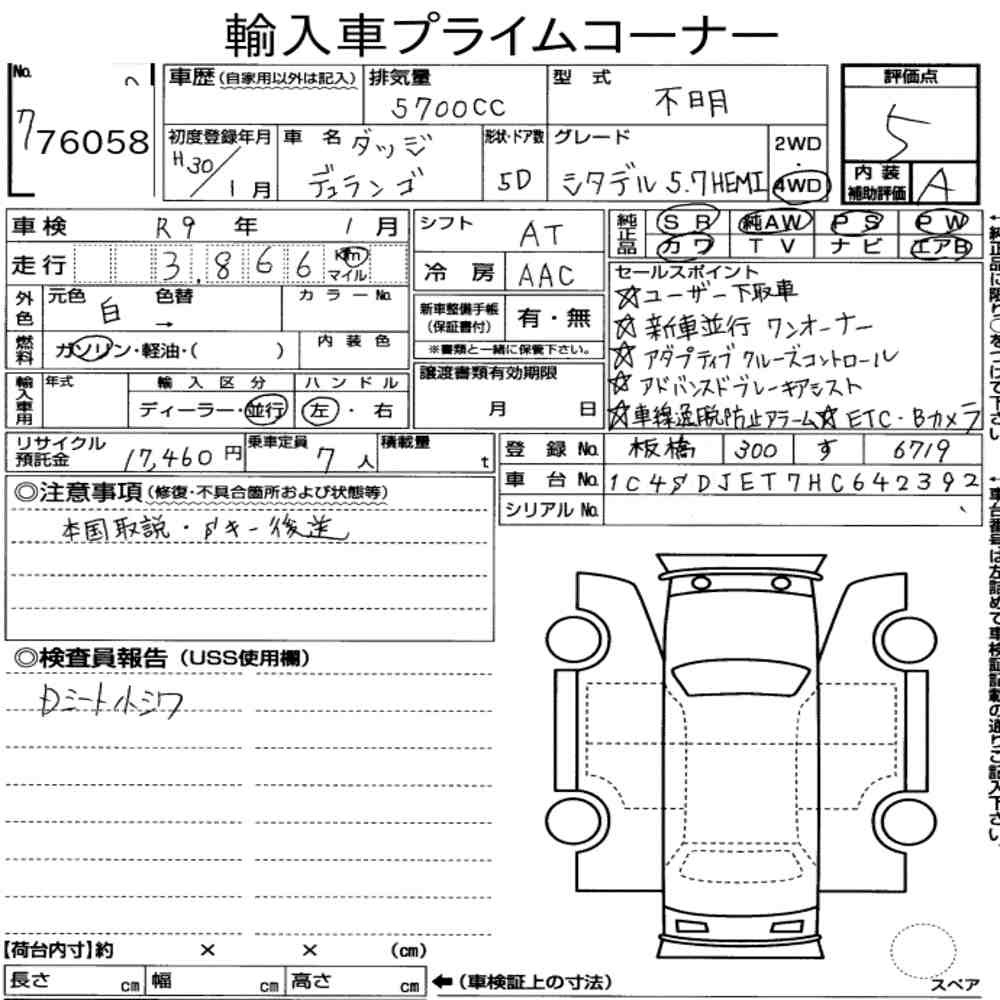 輸入車プライムコーナー
No.
76058
車歴(自家用以外は記入)
排気量
5700CC
型式
不明
評価点
5
初度登録年月
H30/1月
車名
ダッジ
デュランゴ
形状・ドア数
5D
グレード
シタデル 5.7HEMI
2WD
・
4WD
内装
補助評価
A
車検 R9年 1月
走行 3,866 Km マイル
シフト AT
冷房 AAC
純正品
SR 純AW PS PW
カワ TV ナビ エアB
外色
元色 白
色替 →
カラーNo.
燃料
ガソリン・軽油・( )
内装色
新車整備手帳
(保証書付)
有・無
※書類と一緒に保管下さい。
セールスポイント
☆ユーザー下取車
☆新車並行 ワンオーナー
☆アダプティブクルーズコントロール
☆アドバンスドブレーキアシスト
☆車線逸脱防止アラーム☆ETC・Bカメラ
輸入車用
年式
輸入区分
ディーラー・並行
ハンドル
左・右
譲渡書類有効期限
月 日
リサイクル
預託金
17,460円
乗車定員
7人
積載量
t
登録No. 板橋 300 す 6719
車台No. 1C4SDJET7HC642392
シリアルNo.
◎注意事項(修復・不具合箇所および状態等)
本国取説・Sキー後送
◎検査員報告(USS使用欄)
Dシート小シワ
【荷台内寸】約 × × (cm)
長さ cm 幅 cm 高さ cm
←(車検証上の寸法)
スペア
←純正品に限り○をつけて下さい
←車台番号は左詰めで車検証記載の通りご記入下さい。